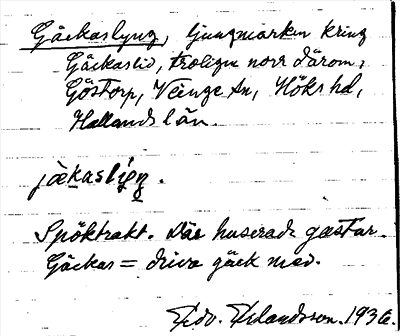 Gäckaslyng, ljungmarken kring
Gäckaslid, troligen norr därom,
Göstorp, Veinge sn, Höks hd,
Hallands län.
jäkaslyŋ.
Spöktrakt. Där huserade gastar.
Gäckas = driva gäck med.
Edv. Erlandsson. 1936.